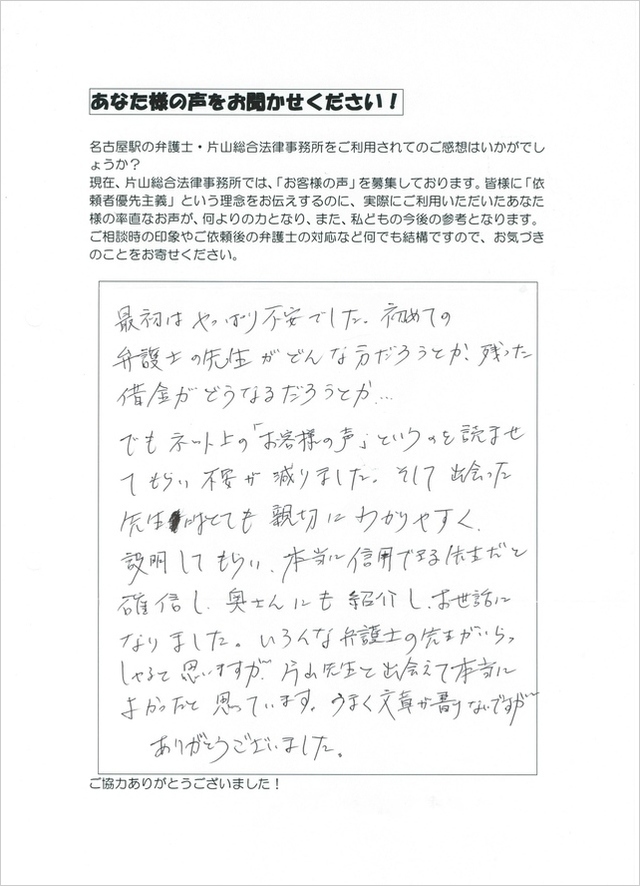 あなた様の声をお聞かせください！
名古屋駅の弁護士・片山総合法律事務所をご利用されてのご感想はいかがでし
ょうか？
現在、片山総合法律事務所では、「お客様の声」を募集しております。皆様に「依
頼者優先主義」という理念をお伝えするのに、実際にご利用いただいたあなた
様の率直なお声が、何よりの力となり、また、私どもの今後の参考となります。
ご相談時の印象やご依頼後の弁護士の対応など何でも結構ですので、お気づき
のことをお寄せください。
最初はやっぱり不安でした。初めての
弁護士の先生がどんな方だろうとか、残った
借金がどうなるだろうとか…
でもネット上の「お客様の声」というのを読ませ
てもらい不安が減りました。そして出会った
先生はとても親切にわかりやすく、
説明してもらい、本当に信用できる先生だと
確信し、奥さんにも紹介し、お世話に
なりました。いろんな弁護士の先生がいらっ
しゃると思いますが、片山先生と出会えて本当に
よかったと思っています。うまく文章が書けないですが
ありがとうございました。
ご協力ありがとうございました！